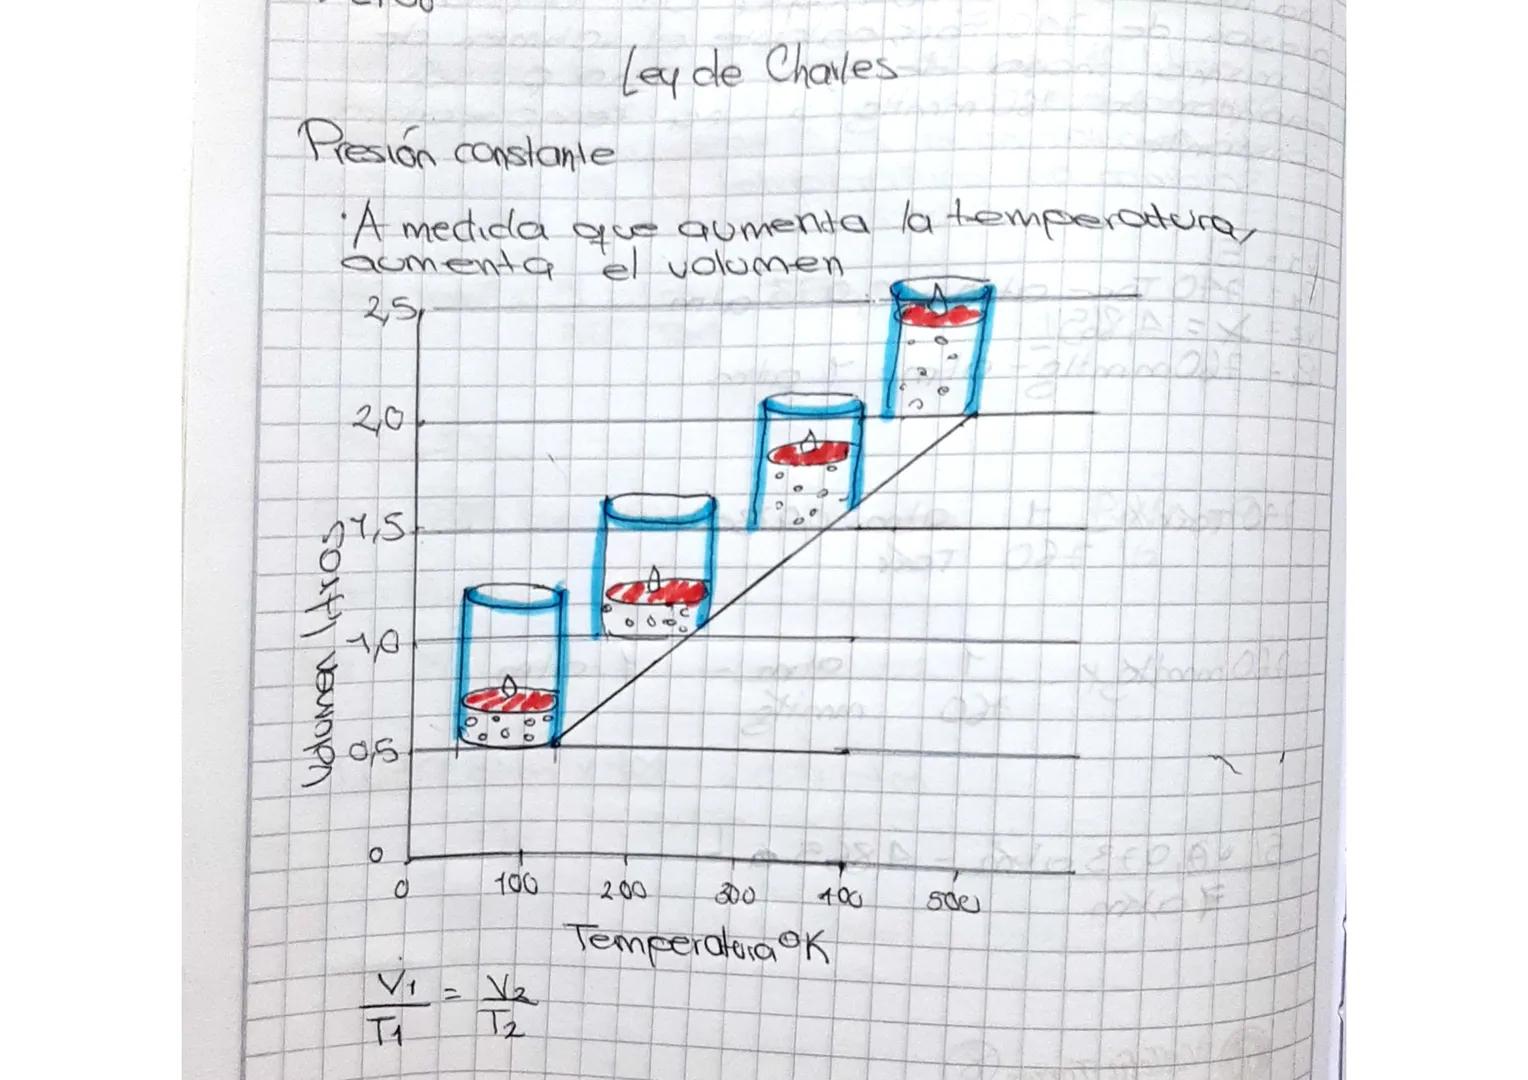 Ley de Charles
Presión constante
· A medida que aumenta la temperatura,
aumenta el volumen
2,5
2,0
1,5
1,0
0,5
0
Volumen litros
0 100 200 300 400 500
Temperatura °K
V1 = V2
T1 T2